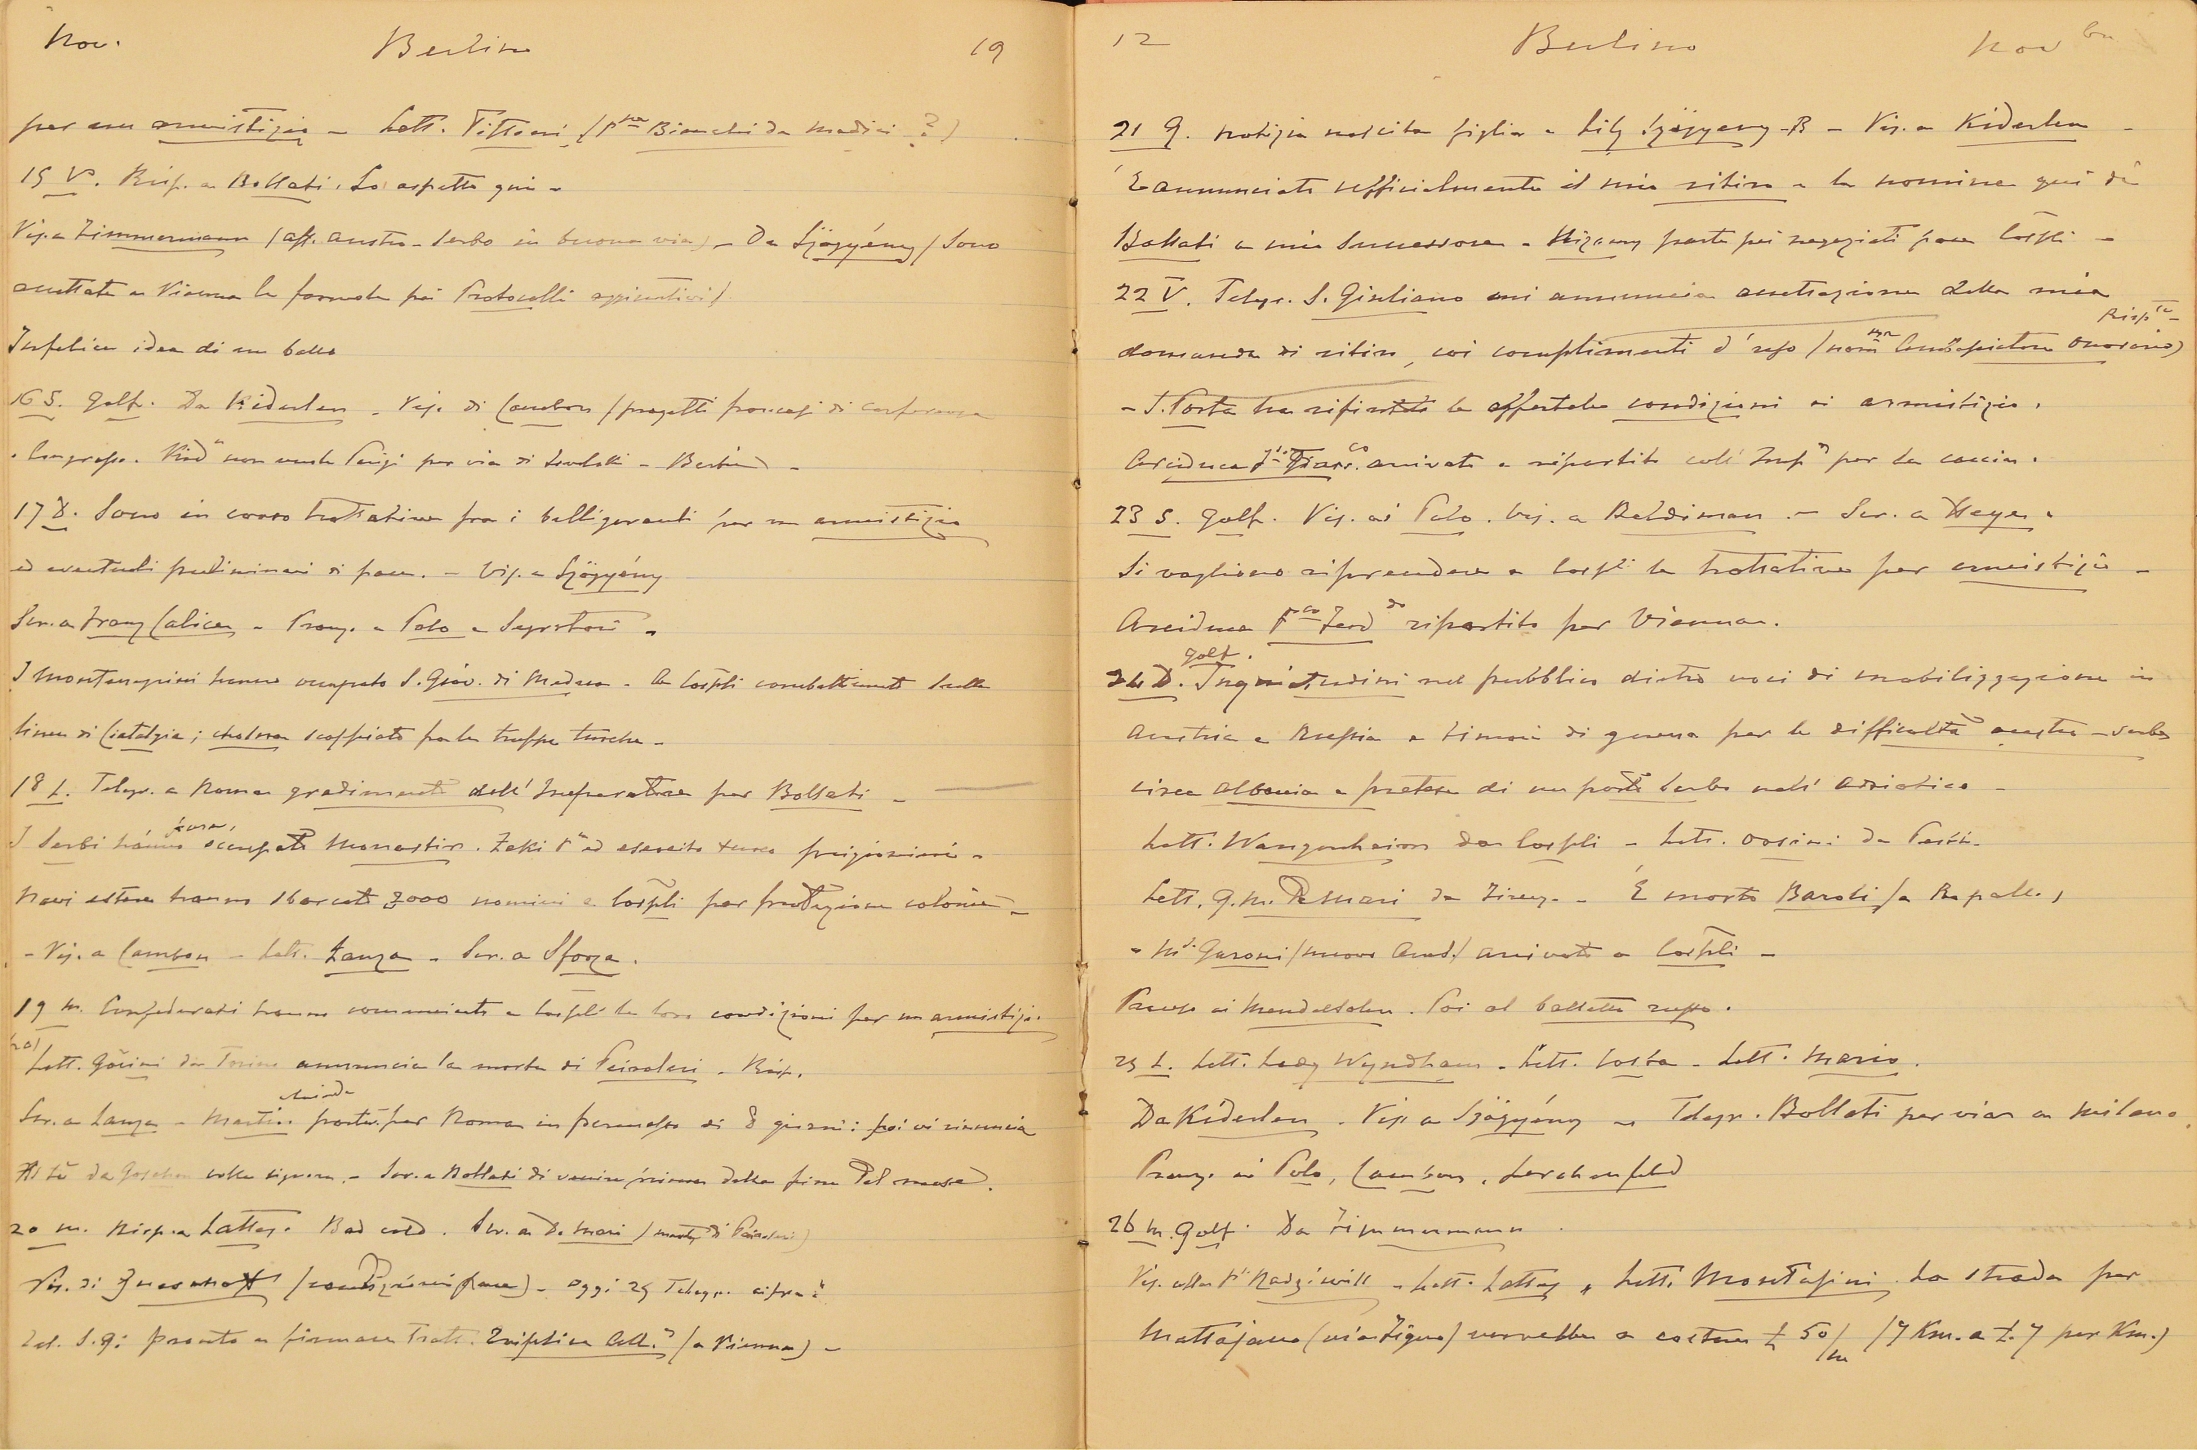 Nov. Berlino 19
per un armistizio – Lett. Tittoni (P.ssa Bianchi da Medici ?)
15 V. Risp. a Bollati. Lo aspetto qui –
Vis. a Zimmermann (aff. austro-serbo in buona via) – Da Szögyény (Sono
accettate a Vienna le formole pei Protocolli aggiuntivi).
Infelice idea di un ballo
16 S. Golf. Da Kiderlen – Vis. di Cambon (progetti francesi di conferenza
o Congresso. Kid.n non vuole Parigi per via di Iswolski – Berlino) –
17 D. Sono in corso trattative fra i belligeranti per un armistizio
ed eventuali preliminari di pace. – Vis. a Szögyény
Scr. a Franz Calice – Pranz. a Polo e Seyrstorf –
I Montenegrini hanno occupato S. Giov. di Medua – A Costpli combattimenti sulla
linea di Ciatalgia; cholera scoppiato fra le truppe turche –
18 L. Telegr. a Roma gradimento dell'Imperatore per Bollati –
I Serbi hanno occupato Monastir. Zeki P.a ed esercito turco prigionieri –
Navi estere hanno sbarcato 3000 uomini a Costpli per protezione colonie –
– Vis. a Cambon – Lett. Lanza – Scr. a Sforza.
19 M. Confederati hanno comunicato a Costpli le loro condizioni per un armistizio.
(20) Lett. Gorini da Torino annuncia la morte di Peiroleri – Risp.
Scr. a Lanza – Martin parte per Roma in permesso di 8 giorni: poi vi rinuncia
At tè da Goschen colla signora. – Scr. a Bollati di venire prima della fine del mese.
20 M. Risp. a Lattes. Bad cold. Scr. a De Mari (morte di Peiroleri)
Vis. di (condizioni pace) – Oggi 25 Telegr. cifra a
S. G: pronto a firmare Tratt. Triplice All.a (a Vienna) –
12 Berlino Novbre
21 G. Notizia nascita figlia a Lily Szögyény-B – Vis. a Kiderlen –
È annunciato ufficialmente il mio ritiro e la nomina qui di
Bollati a mio Successore – Nizamy parte pei negoziati pace Costpli –
22 V. Telegr. S. Giuliano mi annuncia accettazione della mia
domanda di ritiro, coi complimenti d'uso (nom.ne Ambasciatore Onorario) Risp.
– S. Porta ha rifiutato le offertele condizioni di armistizio.
Arciduca arrivato e ripartito coll'Imp.e per la caccia.
23 S. Golf. Vis. ai Polo. Vis. a Beldiman. – Scr. a Heyer.
Si vogliono riprendere a Costpli le trattative per armistizio –
Arciduca F.co Ferd.do ripartito per Vienna.
24 D. Golf. Inquietudini nel pubblico dietro voci di mobilizzazione in
Austria e Russia e timori di guerra per le difficoltà austro-serbe
circa Albania e pretesa di un porto serbo nell'Adriatico –
Lett. Wangenheim da Costpli – Lett. Orsini da
Lett. G. M. De Mari da Firenz. – È morto Baroli (a Rapallo)
– M.s Garroni (nuovo Amb.) arrivato a Costpli –
Pranzo ai Mendelsohn. Poi al balletto russo.
25 L. Lett. Lady Wyndham – Lett. Costa – Lett. Mario.
Da Kiderlen. Vis. a Szögyény – Telegr. Bollati per via a Milano.
Pranz. ai Polo, Cambon, Lerchenfeld
26 M. Golf. Da Zimmermann.
Vis. alla P.ssa Radziwill – Lett. Lattes, Lett. Montafini. La strada per
Mattajano (via Figna) verrebbe a costare £ 50/m (7 Km. a £. 7 per Km.)